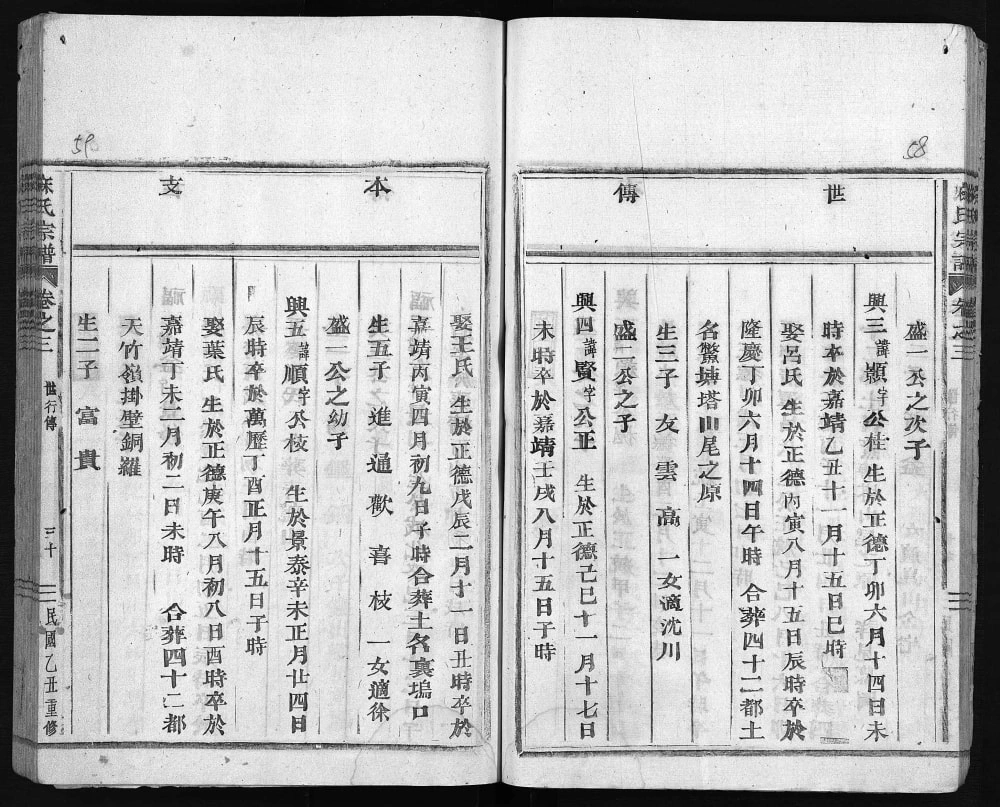 58
麻氏宗譜 卷之三
世傳
盛一公之次子
興三諱顥字公桂 生於正德丁卯六月十四日未
時卒於嘉靖乙丑十一月十五日巳時
娶呂氏 生於正德丙寅八月十五日辰時卒於
隆慶丁卯六月十四日午時 合葬四十二都土
名鱉塘塔山尾之原
生三子 友 雲 高 一女適沈川
盛二公之子
興四諱賢字公正 生於正德己巳十一月十七日
未時卒於嘉靖壬戌八月十五日子時
59
本支
娶王氏 生於正德戊辰二月十一日丑時卒於
嘉靖丙寅四月初九日子時合葬土名裏塢口
生五子 進 通 歡 喜 枝 一女適徐
盛一公之幼子
興五諱順字公枝 生於景泰辛未正月廿四日
辰時卒於萬曆丁酉正月十五日子時
娶葉氏 生於正德庚午八月初八日酉時卒於
嘉靖丁未二月初二日未時 合葬四十二都
天竹嶺掛壁銅羅
生二子 富 貴
麻氏宗譜 卷之三 世行傳 三十 民國乙丑重修